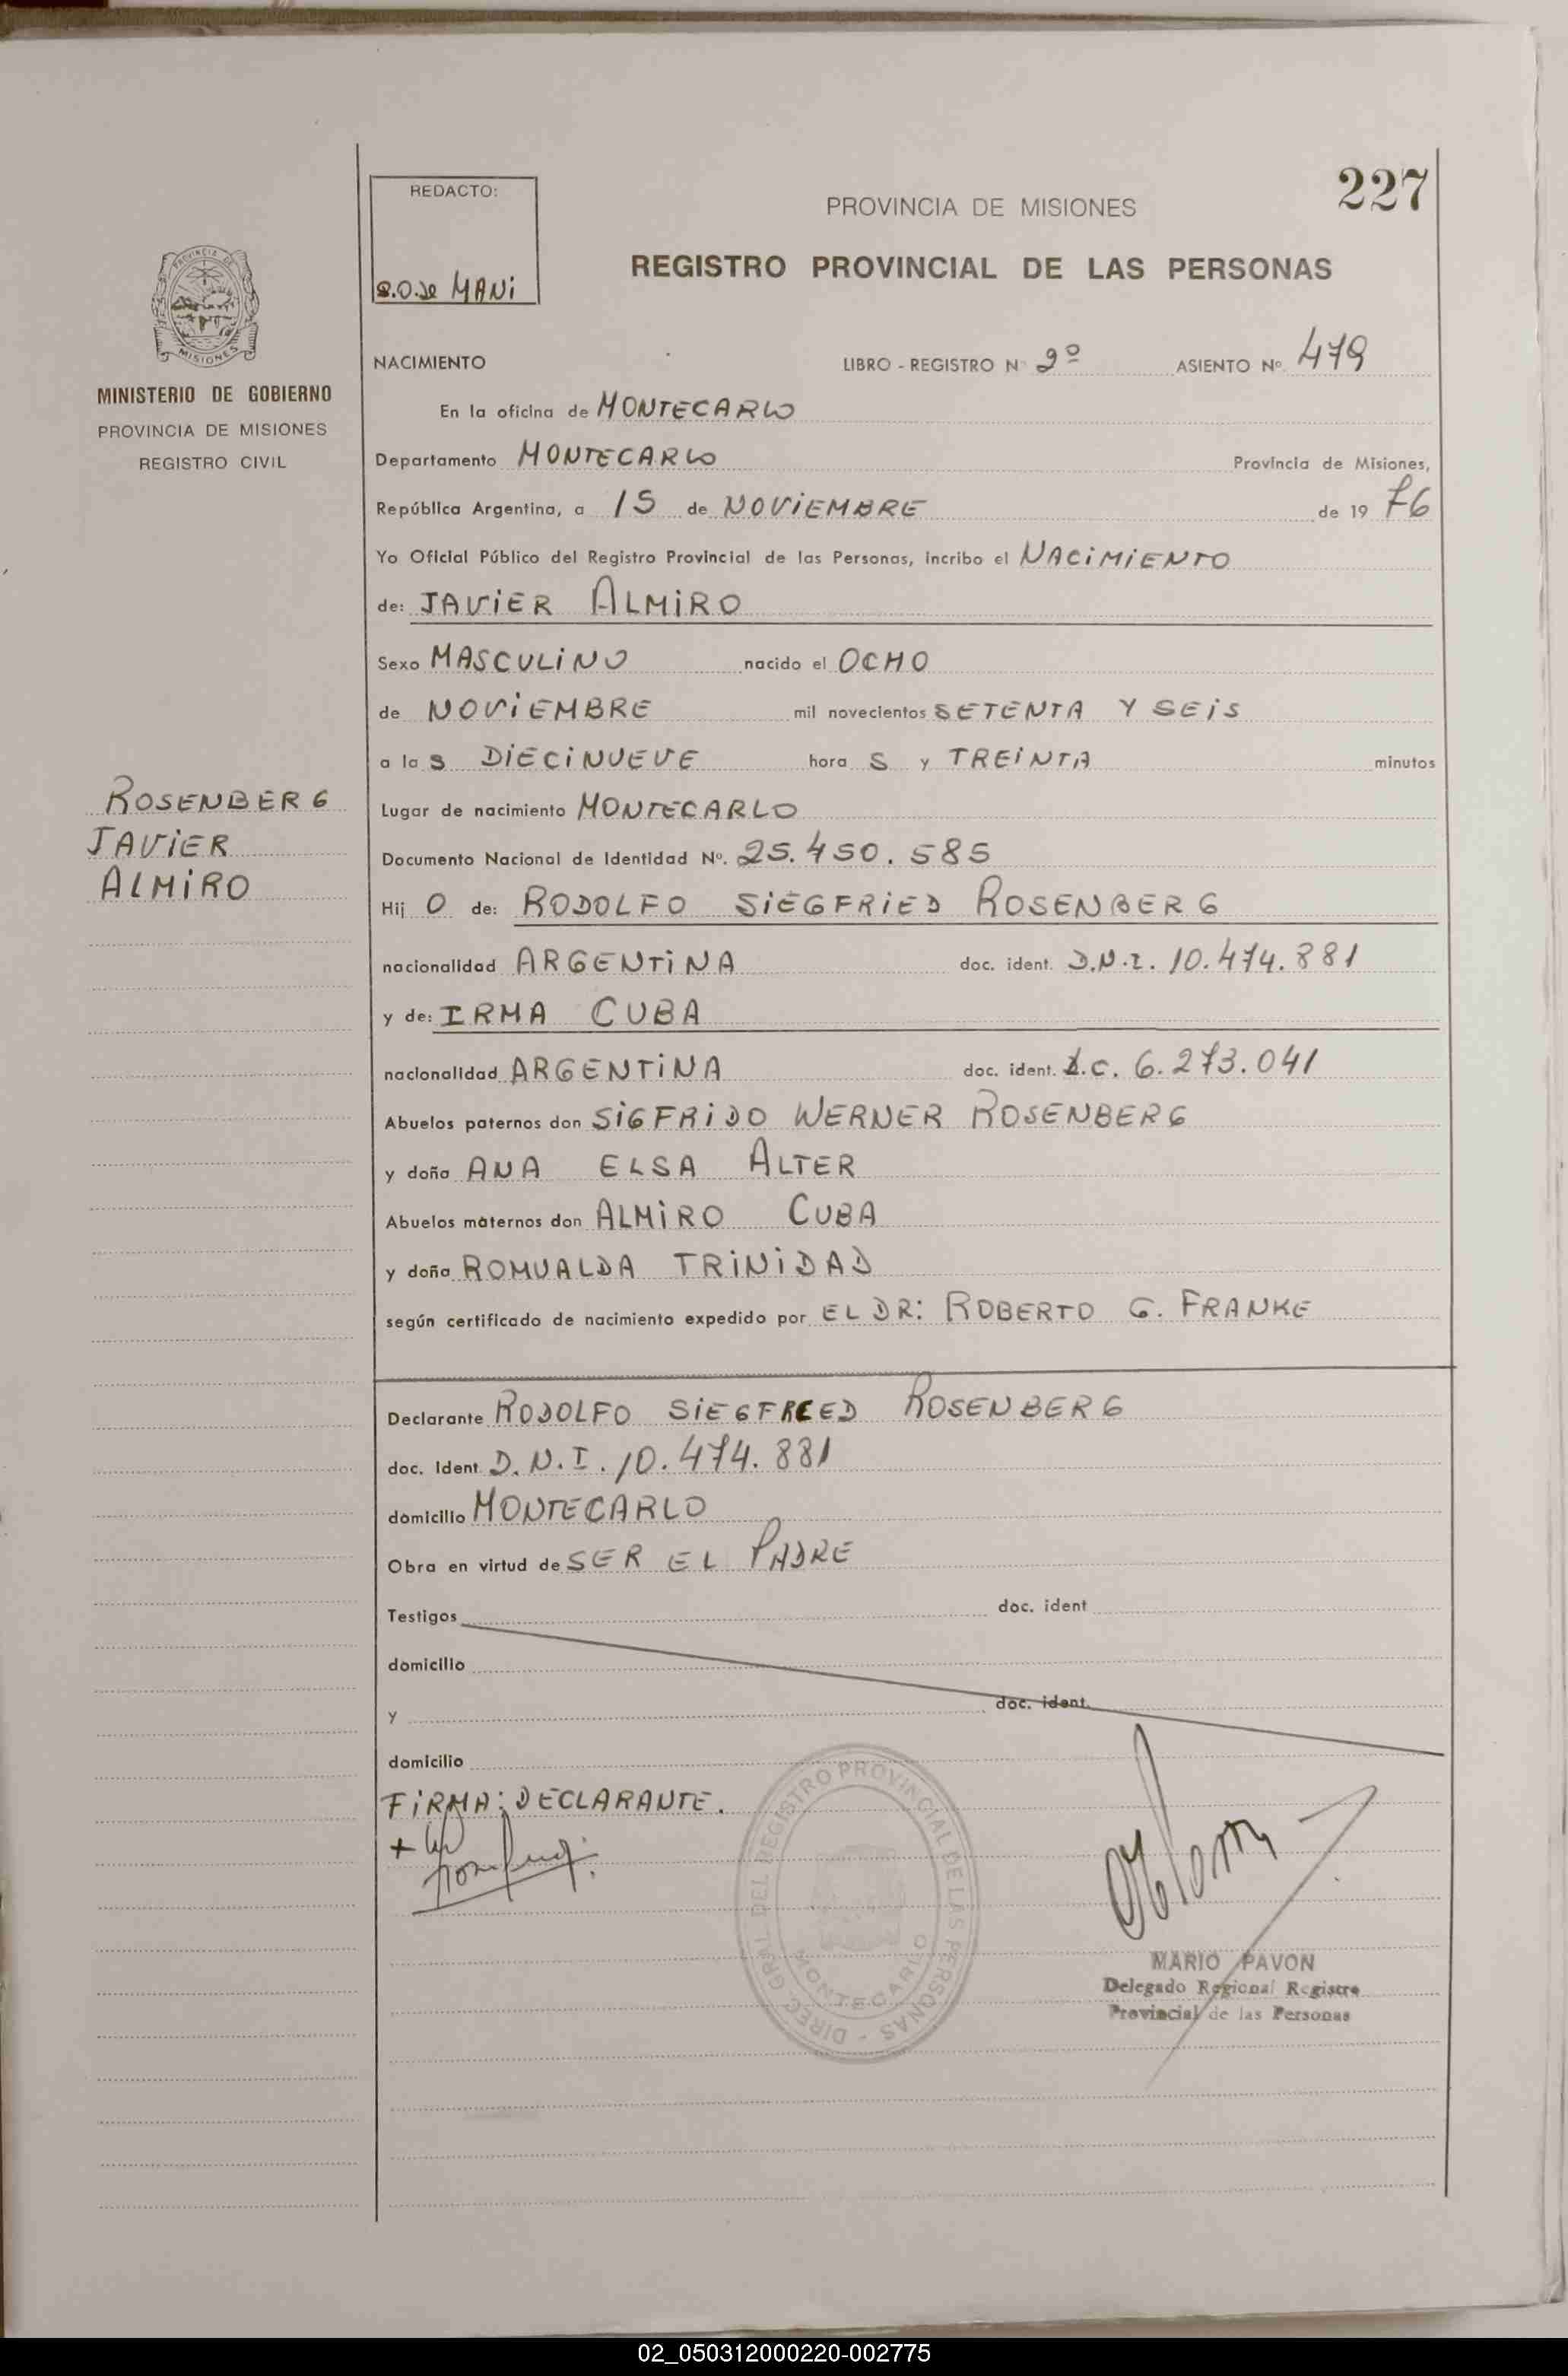 227
REDACTO:
S.O. de MANI
PROVINCIA DE MISIONES
REGISTRO PROVINCIAL DE LAS PERSONAS
PROVINCIA DE
MISIONES
MINISTERIO DE GOBIERNO
PROVINCIA DE MISIONES
REGISTRO CIVIL
NACIMIENTO LIBRO - REGISTRO Nº 2º ASIENTO Nº 479
En la oficina de MONTECARLO
Departamento MONTECARLO Provincia de Misiones,
República Argentina, a 15 de NOViEMBRE de 19 76
Yo Oficial Público del Registro Provincial de las Personas, incribo el NACiMiENTO
de: JAViER ALMiRO
Sexo MASCULiNO nacido el OCHO
de NOViEMBRE mil novecientos SETENTA Y SEiS
a las DiECiNUEVE hora S y TREiNTA minutos
ROSENBERG
JAViER
ALMiRO
Lugar de nacimiento MONTECARLO
Documento Nacional de Identidad Nº. 25.450.585
Hij O de: RODOLFO SiEGFRiED ROSENBERG
nacionalidad ARGENTiNA doc. ident. D.N.I. 10.474.881
y de: IRMA CUBA
nacionalidad ARGENTiNA doc. ident. L.C. 6.273.041
Abuelos paternos don SiGFRiDO WERNER ROSENBERG
y doña ANA ELSA ALTER
Abuelos maternos don ALMiRO CUBA
y doña ROMUALDA TRiNiDAD
según certificado de nacimiento expedido por EL DR: ROBERTO G. FRANKE
Declarante RODOLFO SiEGFREED ROSENBERG
doc. Ident D.N.I. 10.474.881
domicilio MONTECARLO
Obra en virtud de SER EL PADRE
Testigos doc. ident
domicilio
y doc. ident.
domicilio
FiRMA: DECLARANTE.
DIREC GRAL DEL REGISTRO PROVINCIAL DE LAS PERSONAS -
MONTECARLO
MARIO PAVON
Delegado Regional Registro
Provincial de las Personas
02_050312000220-002775